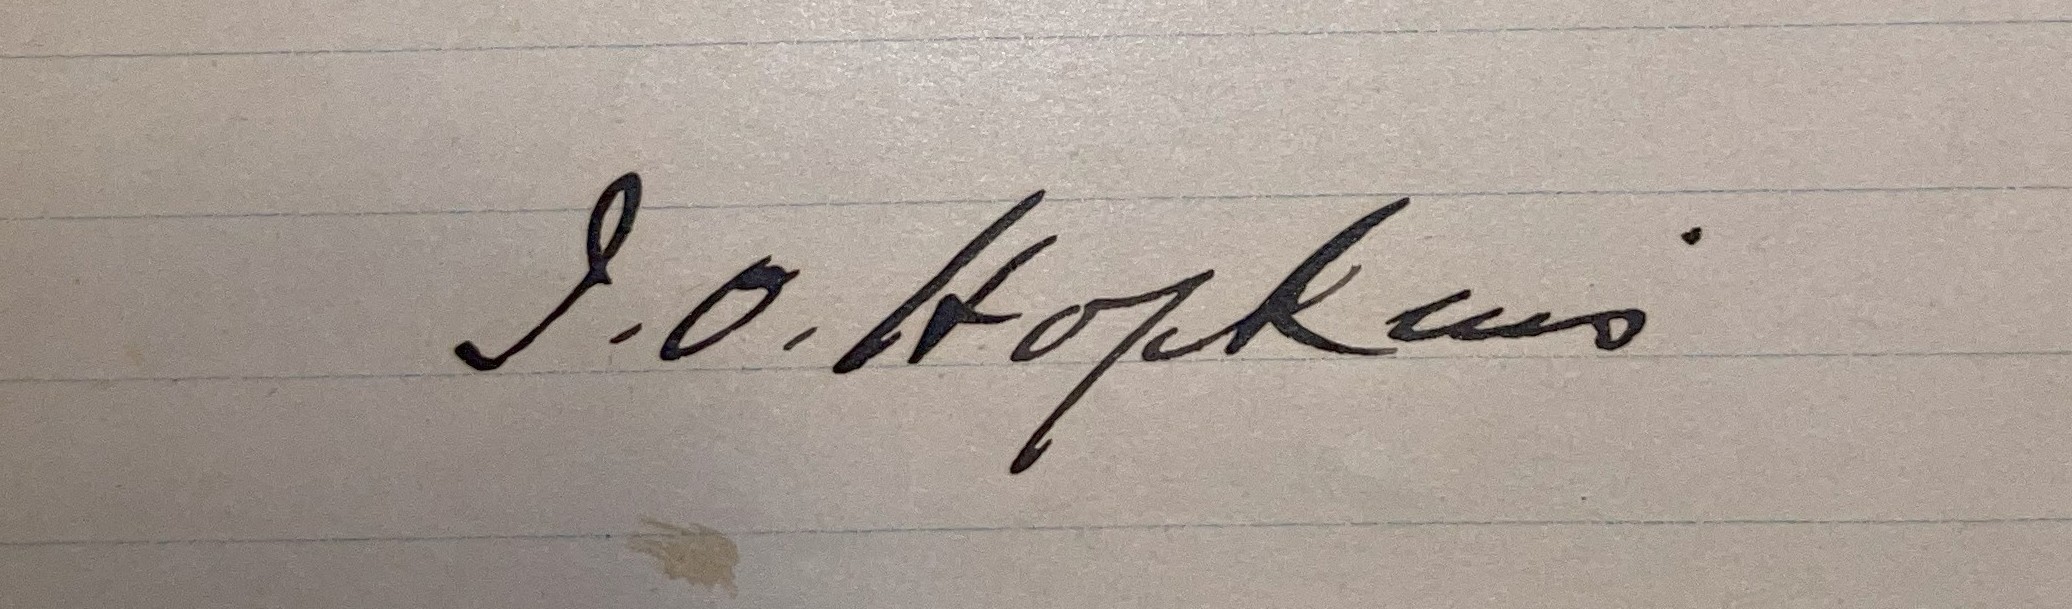 I. O. Hopkins